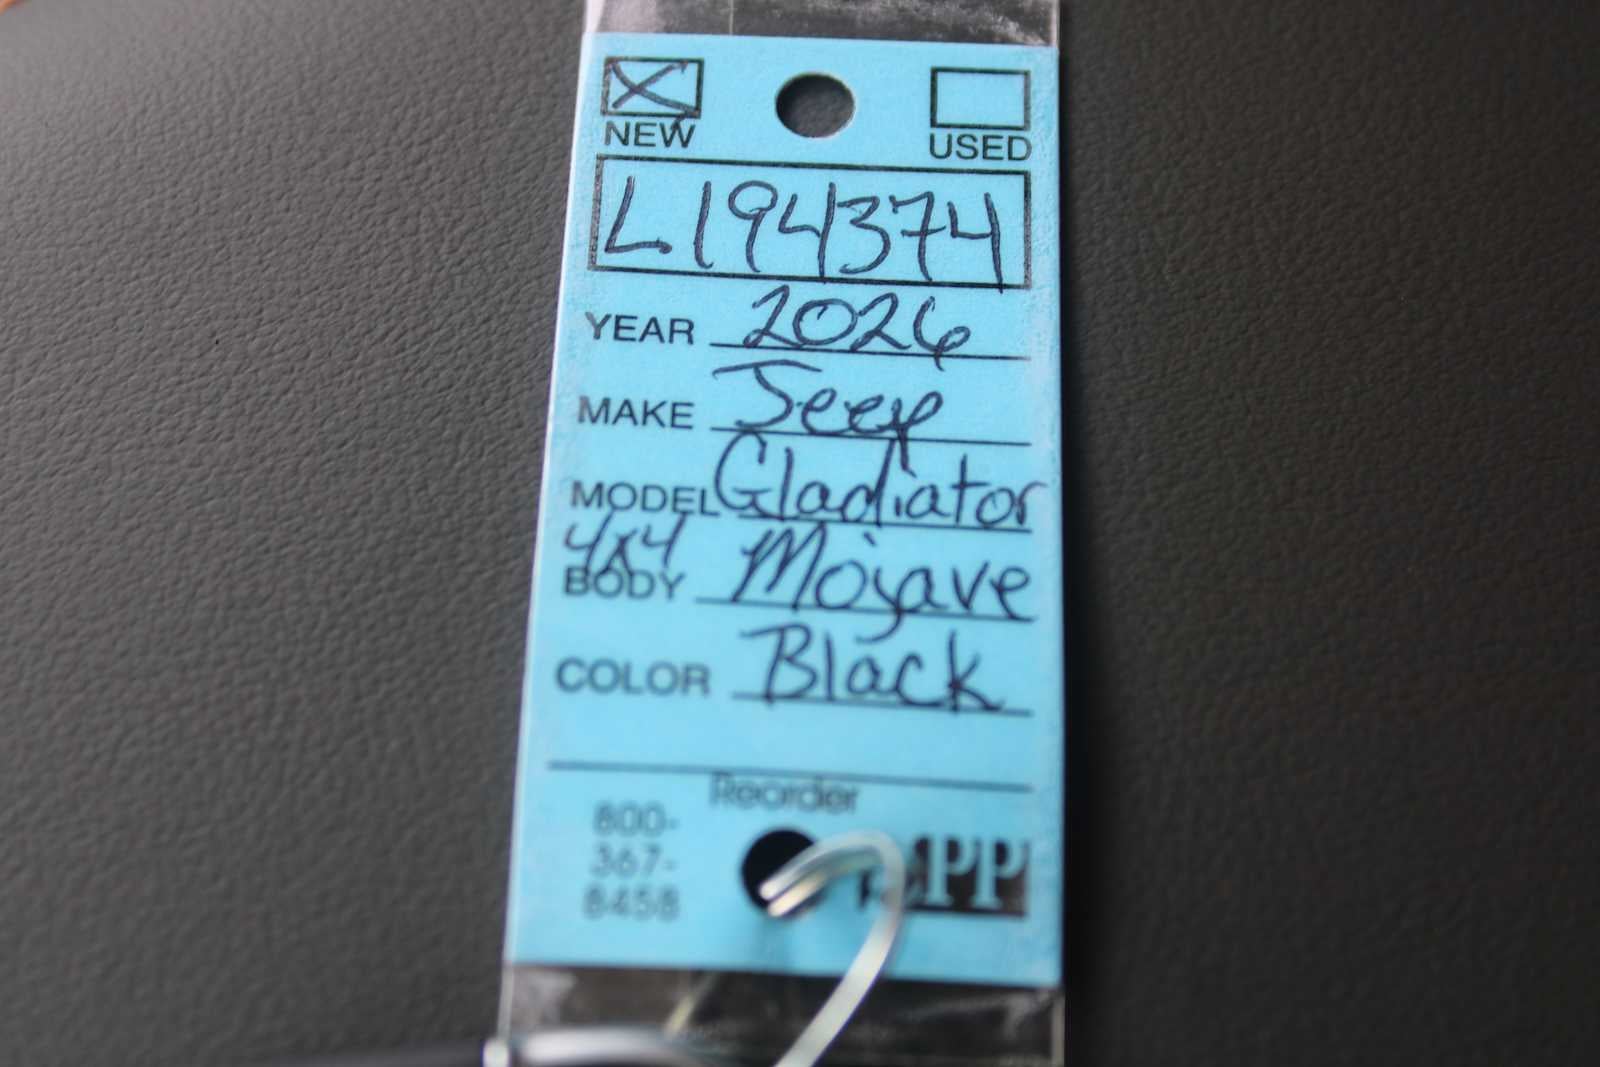 NEW USED
L194374
YEAR 2026
MAKE Jeep
MODEL Gladiator
4x4
BODY Mojave
COLOR Black
Reorder
800-
367-
8458
PP